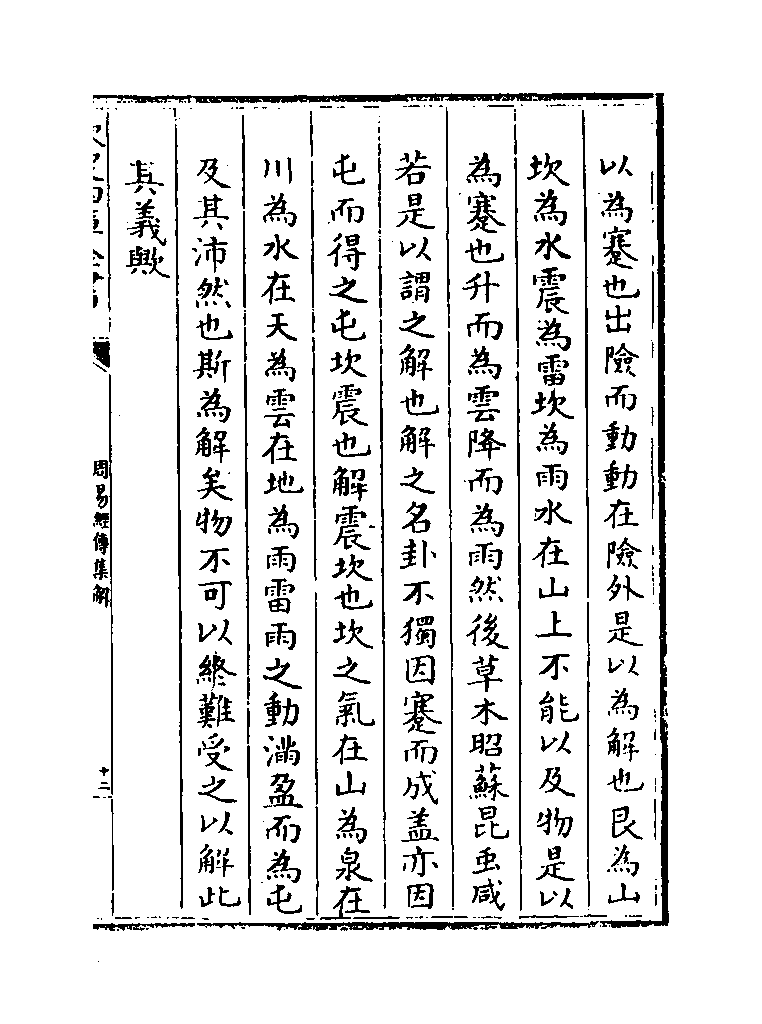 以為蹇也出險而動動在險外是以為解也艮為山
坎為水震為雷坎為雨水在山上不能以及物是以
為蹇也升而為雲降而為雨然後草木昭蘇昆虫咸
若是以謂之解也解之名卦不獨因蹇而成盖亦因
屯而得之屯坎震也解震坎也坎之氣在山為泉在
川為水在天為雲在地為雨雷雨之動滿盈而為屯
及其沛然也斯為解矣物不可以終難受之以解此
其義歟
周易經傳集解
十二